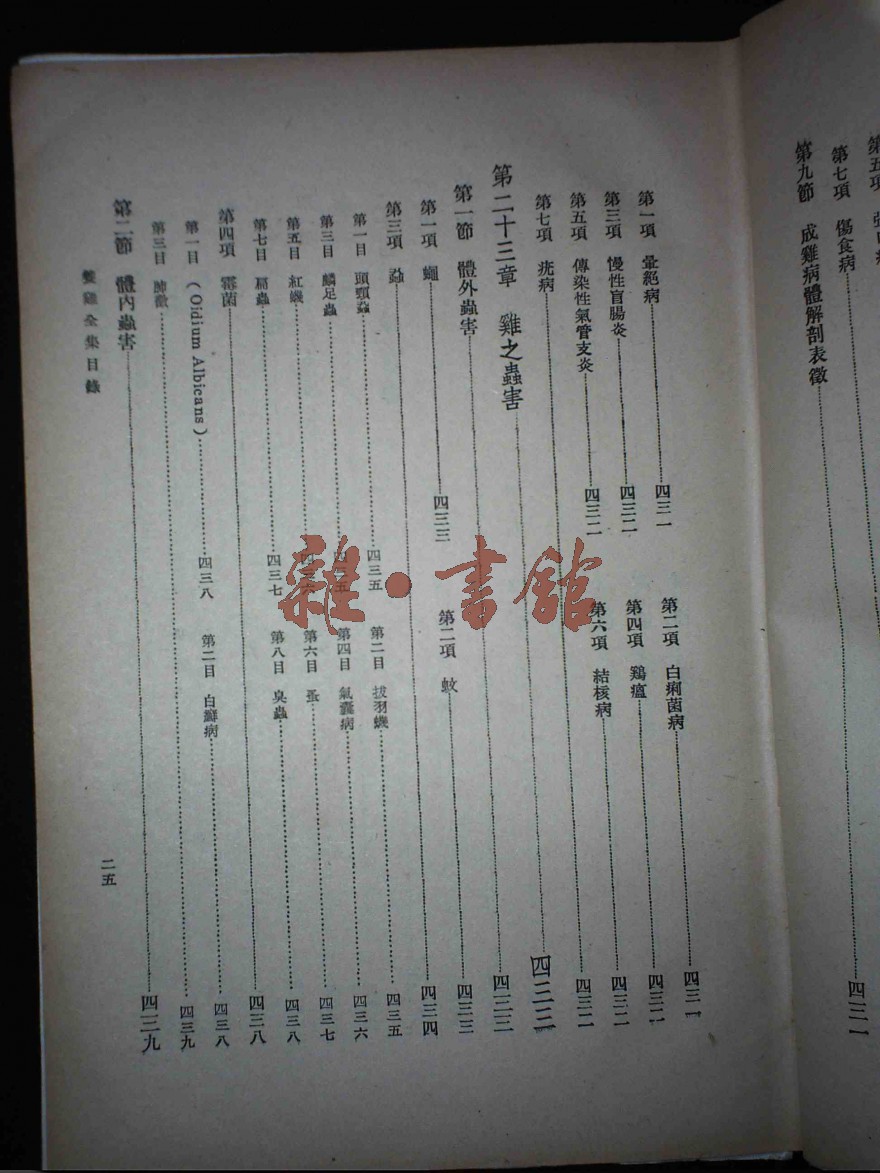 第七項 傷食病
第九節 成雞病體解剖表徵 四三一
第一項 暈絕病 四三一 第二項 白痢菌病 四三一
第三項 慢性盲腸炎 四三二 第四項 鷄瘟 四三二
第五項 傳染性氣管支炎 四三二 第六項 結核病 四三二
第七項 疣病 四三二
第二十三章 雞之蟲害 四三三
第一節 體外蟲害 四三三
第一項 蠅 四三三 第二項 蚊 四三三
第三項 蝨 四三四
第一目 頭頸蝨 四三五 第二目 拔羽蟣 四三五
第三目 鱗足蟲 第四目 氣囊病 四三六
第五目 紅蟣 第六目 蚤 四三七
第七目 扁蟲 四三七 第八目 臭蟲 四三八
第四項 霉菌 四三八
第一目 (Oidium Albicans) 四三八 第二目 白癬病 四三八
第三目 肺黴 四三九
第二節 體內蟲害 四三九
養雞全集目錄 二五
雜·書館